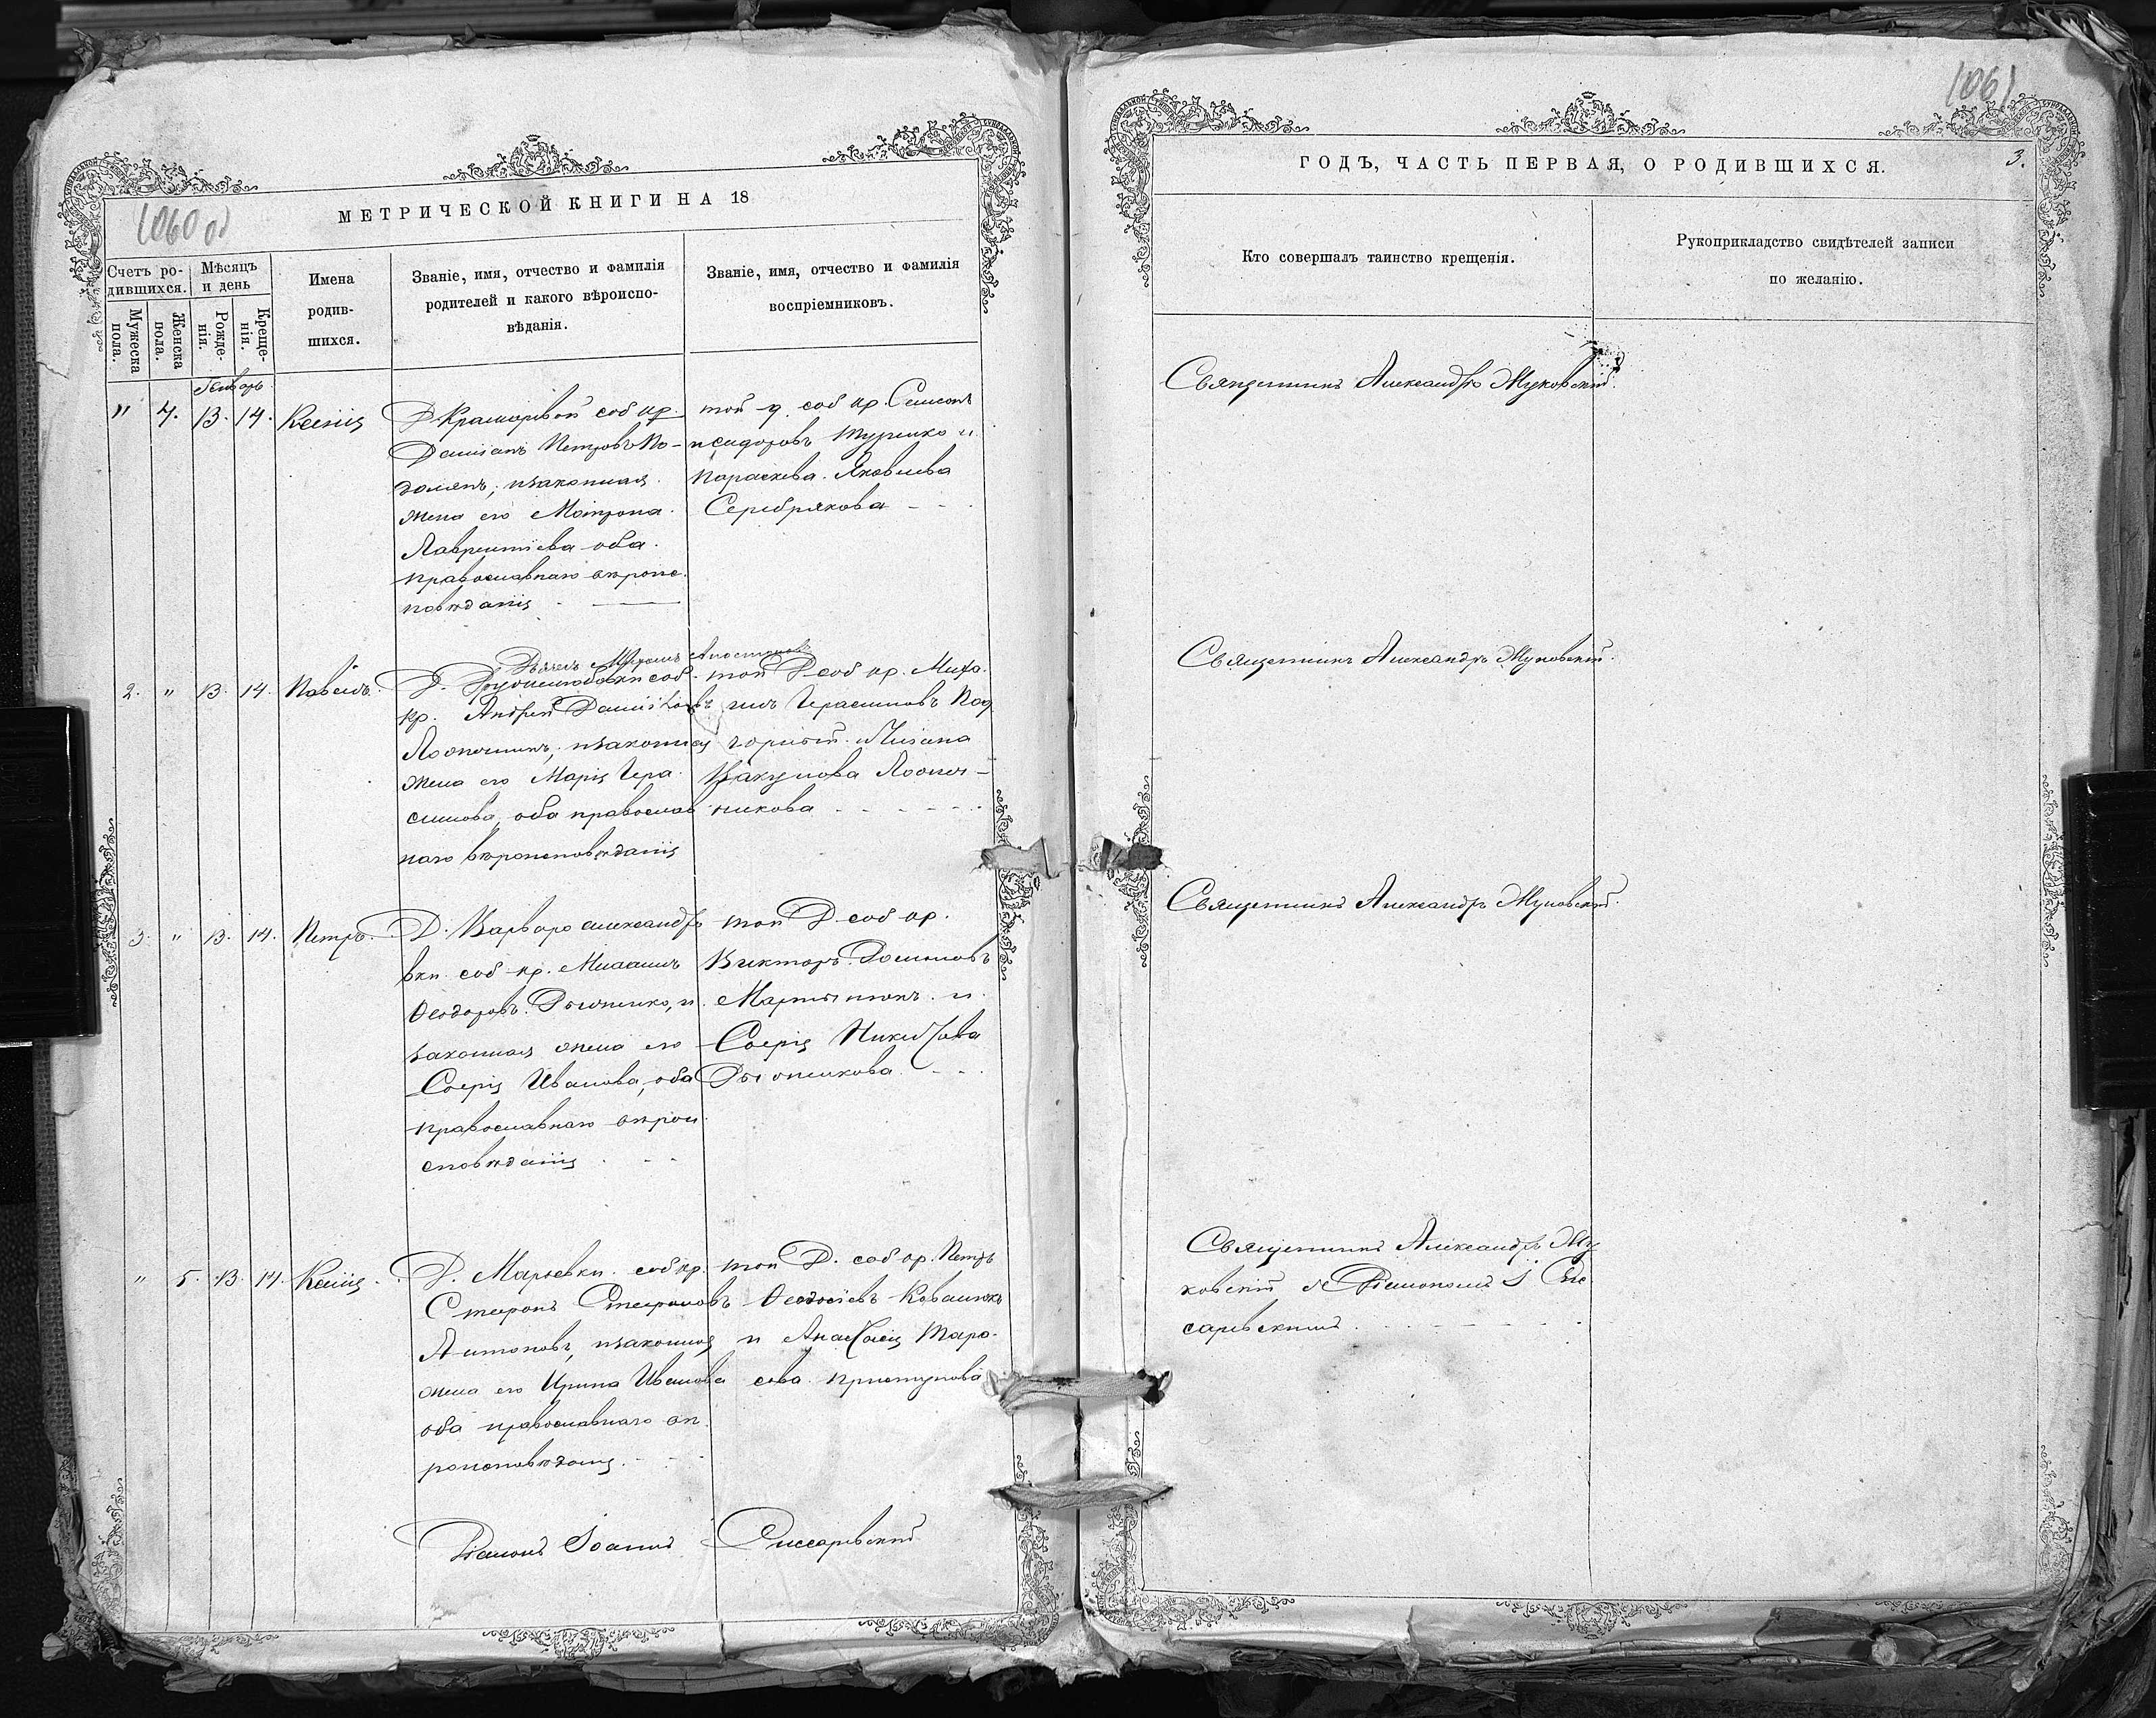 1060 об
МЕТРИЧЕСКОЙ КНИГИ НА 18
Счетъ ро-
дившихся.
Мѣсяцъ
и день
Мужеска
пола.
Женска
пола.
Рожде-
нія.
Креще-
нія.
Имена
родив-
шихся.
Званіе, имя, отчество и фамилія
родителей и какого вѣроиспо-
вѣданія.
Званіе, имя, отчество и фамилія
воспріемниковъ.
Генварь
" 4. 13. 14. Ксенія
Д. соб кр.
Даміанъ Петровъ По-
долянъ, и законная
жена его Матрона
Лаврентіева оба
православнаго вѣроис-
повѣданія
той д. соб кр. Самсонъ
Исидоровъ Туренко и
Параскева Яковлева
Серебрякова
2. " 13. 14. Павелъ.
Д. соб.
кр. Андрей Даміановъ
и законная
жена его Марія Гера-
симова, оба православ
наго вѣроисповѣданія
той Д. соб кр. Миха-
илъ Герасимовъ Под
и
Вакулова
никова
3. " 13. 14. Петръ.
Д. Варваро александро
вки соб кр.
Ѳеодоровъ и
законная жена его
Софія Иванова, оба
православнаго вѣрои
сповѣданія
той Д. соб кр.
Викторъ
Мартынюкъ и
Софія Никитова
" 5. 13. 14. Ксенія.
Д. Марьевки соб кр.
Стефанъ Стефановъ
Антоновъ, и законная
жена его Ирина Иванова
оба православнаго вѣ
роисповѣданія.
той Д. соб кр. Петръ
Ѳеодосіевъ Ковалюкъ
и Анастасія Тара-
сова Приступова
Діаконъ Іоаннъ
1061
3.
ГОДЪ, ЧАСТЬ ПЕРВАЯ, О РОДИВШИХСЯ.
Кто совершалъ таинство крещенія.
Рукоприкладство свидѣтелей записи
по желанію.
Священникъ Александръ Жуковскій.
Священникъ Александръ Жуковскій.
Священникъ Александръ Жуковскій.
Священникъ Александръ Жу
ковскій съ Діакономъ І.